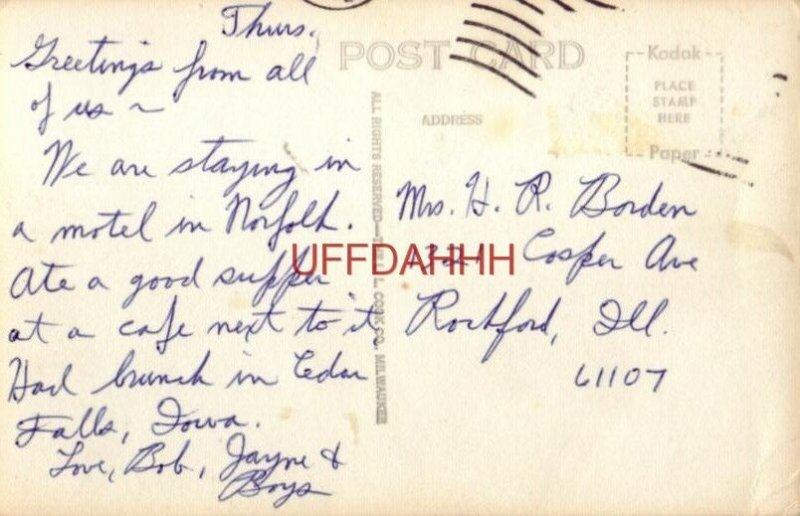 Thurs.
Greetings from all
of us ~
We are staying in
a motel in Norfolk.
Ate a good supper
at a cafe next to it
Had brunch in Cedar
Falls, Iowa.
Love, Bob, Jayne &
Boys
POST CARD
ADDRESS
Kodak
PLACE
STAMP
HERE
Paper
Mrs. H. R. Borden
Cosper Ave
Rockford, Ill.
61107
ALL RIGHTS RESERVED— L. COOK CO., MILWAUKEE
UFFDAHHH